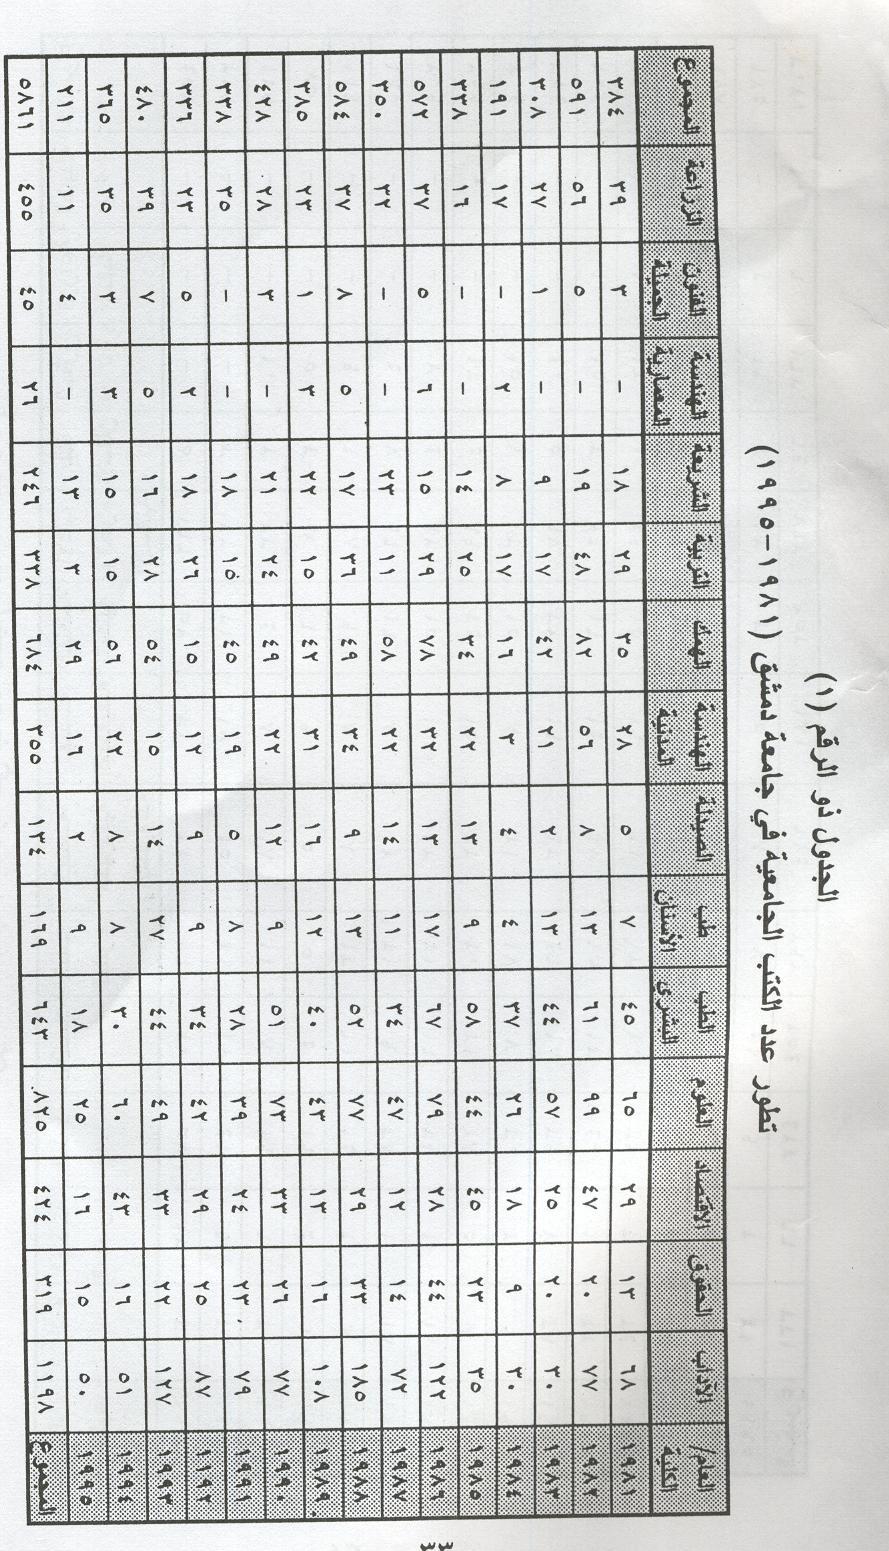 الجدول ذو الرقم (١)
تطور عدد الكتب الجامعية في جامعة دمشق (١٩٨١-١٩٩٥)
العام/ الكلية الآداب الحقوق الاقتصاد العلوم الطب البشري طب الأسنان الصيدلة الهندسة المدنية الهمك التربية الشريعة الهندسة المعمارية الفنون الجميلة الزراعة المجموع
١٩٨١ ٦٨ ١٣ ٢٩ ٦٥ ٤٥ ٧ ٥ ٢٨ ٣٥ ٢٩ ١٨ – ٣ ٣٩ ٣٨٤
١٩٨٢ ٧٧ ٢٠ ٤٧ ٩٩ ٦١ ١٣ ٨ ٥٦ ٨٢ ٤٨ ١٩ – ٥ ٥٦ ٥٩١
١٩٨٣ ٣٠ ٢٠ ٢٥ ٥٧ ٤٤ ١٣ ٢ ٢١ ٤٢ ١٧ ٩ – ١ ٢٧ ٣٠٨
١٩٨٤ ٣٠ ٩ ١٨ ٢٦ ٣٧ ٤ ٤ ٣ ١٦ ١٧ ٨ ٢ – ١٧ ١٩١
١٩٨٥ ٣٥ ٢٣ ٤٥ ٤٤ ٥٨ ٩ ١٣ ٢٢ ٣٤ ٢٥ ١٤ – – ١٦ ٣٣٨
١٩٨٦ ١٢٢ ٤٤ ٢٨ ٧٩ ٦٧ ١٧ ١٣ ٣٢ ٧٨ ٢٩ ١٥ ٦ ٥ ٣٧ ٥٧٢
١٩٨٧ ٧٢ ١٤ ١٢ ٤٧ ٣٤ ١١ ١٤ ٢٢ ٥٨ ١١ ٢٣ – – ٣٢ ٣٥٠
١٩٨٨ ١٨٥ ٣٣ ٢٩ ٧٧ ٥٢ ١٣ ٩ ٣٤ ٤٩ ٣٦ ١٧ ٥ ٨ ٣٧ ٥٨٤
١٩٨٩ ١٠٨ ١٦ ١٣ ٤٣ ٤٠ ١٢ ١٦ ٣١ ٤٢ ١٥ ٢٢ ٣ ١ ٢٣ ٣٨٥
١٩٩٠ ٧٧ ٢٦ ٣٣ ٧٣ ٥١ ٩ ١٢ ٢٢ ٤٩ ٢٤ ٢١ – ٣ ٢٨ ٤٢٨
١٩٩١ ٧٩ ٢٣ ٢٤ ٣٩ ٢٨ ٨ ٥ ١٩ ٤٥ ١٥ ١٨ – – ٣٥ ٣٣٨
١١٩٢ ٨٧ ٢٥ ٢٩ ٤٢ ٣٤ ٩ ٩ ١٢ ١٥ ٢٦ ١٨ ٢ ٥ ٢٣ ٣٣٦
١٩٩٣ ١٢٧ ٢٢ ٣٣ ٤٩ ٤٤ ٢٧ ١٤ ١٥ ٥٤ ٢٨ ١٦ ٥ ٧ ٣٩ ٤٨٠
١٩٩٤ ٥١ ١٦ ٤٣ ٦٠ ٣٠ ٨ ٨ ٢٢ ٥٦ ١٥ ١٥ ٣ ٣ ٣٥ ٣٦٥
١٩٩٥ ٥٠ ١٥ ١٦ ٢٥ ١٨ ٩ ٢ ١٦ ٢٩ ٣ ١٣ – ٤ ١١ ٢١١
المجموع ١١٩٨ ٣١٩ ٤٢٤ ٨٢٥ ٦٤٣ ١٦٩ ١٣٤ ٣٥٥ ٦٨٤ ٣٣٨ ٢٤٦ ٢٦ ٤٥ ٤٥٥ ٥٨٦١
٣٣